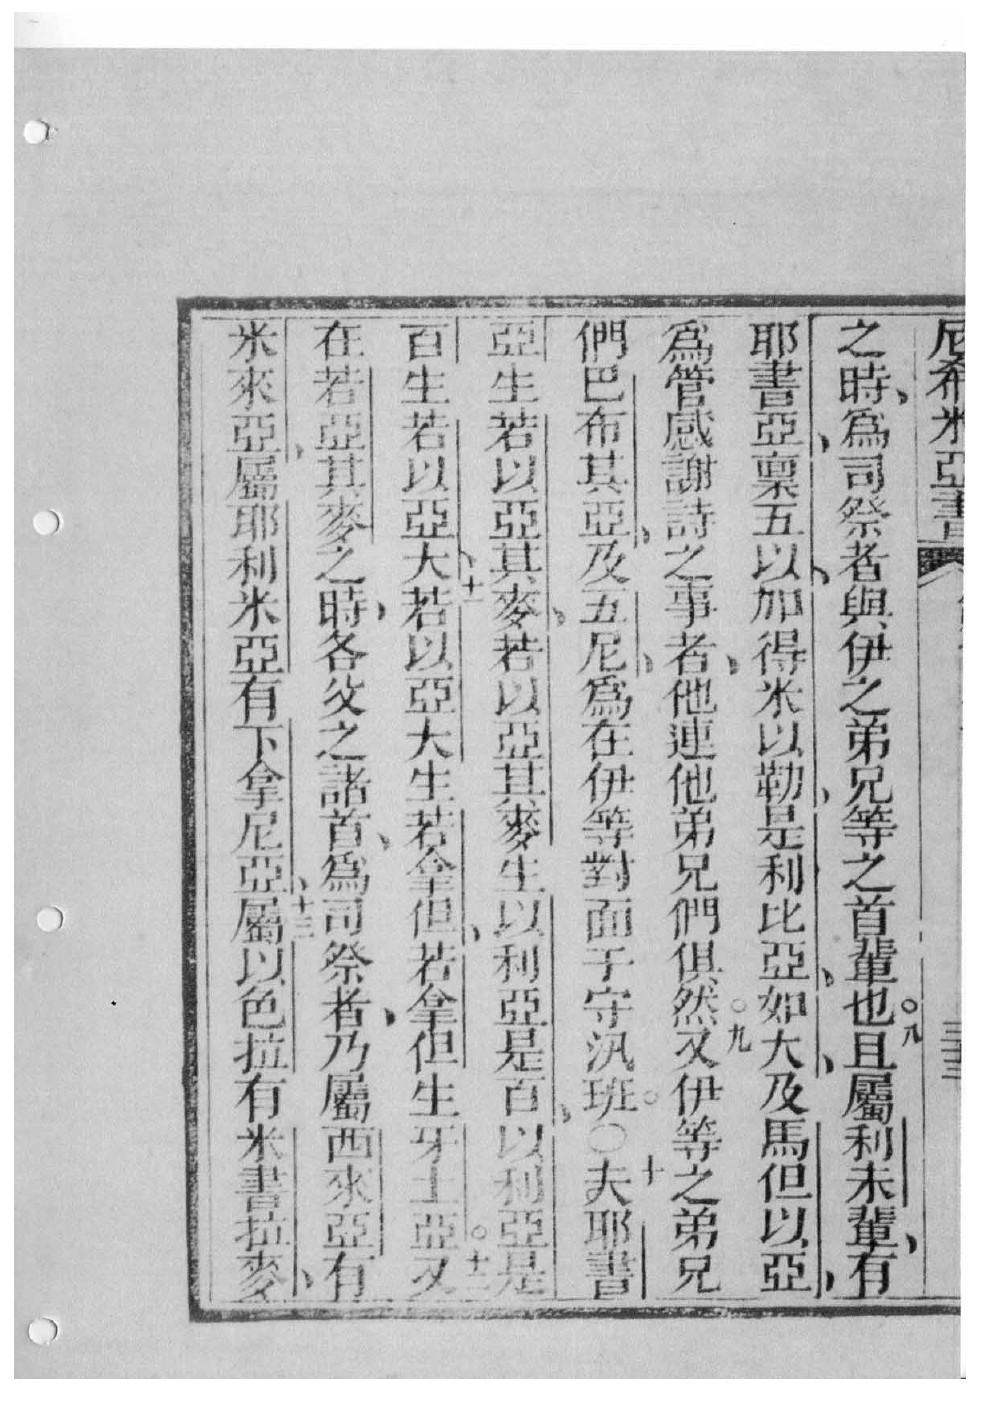 尼希米亞書
三三
之時、爲司祭者與伊之弟兄等之首輩也。八且屬利未輩、有
耶書亞、稟五以、加得米以勒、是利比亞、如大、及馬但以亞、
爲管感謝詩之事者、他連他弟兄們俱然。九又伊等之弟兄
們巴布其亞、及五尼、爲在伊等對面于守汛班。○十夫耶書
亞生若以亞其麥、若以亞其麥生以利亞是百、以利亞是
百生若以亞大、十一若以亞大生若拿但、若拿但生牙土亞。十二又
在若亞其麥之時、各父之諸首、爲司祭者、乃屬西來亞有
米來亞、屬耶利米亞有下拿尼亞、十三屬以色拉有米書拉麥、